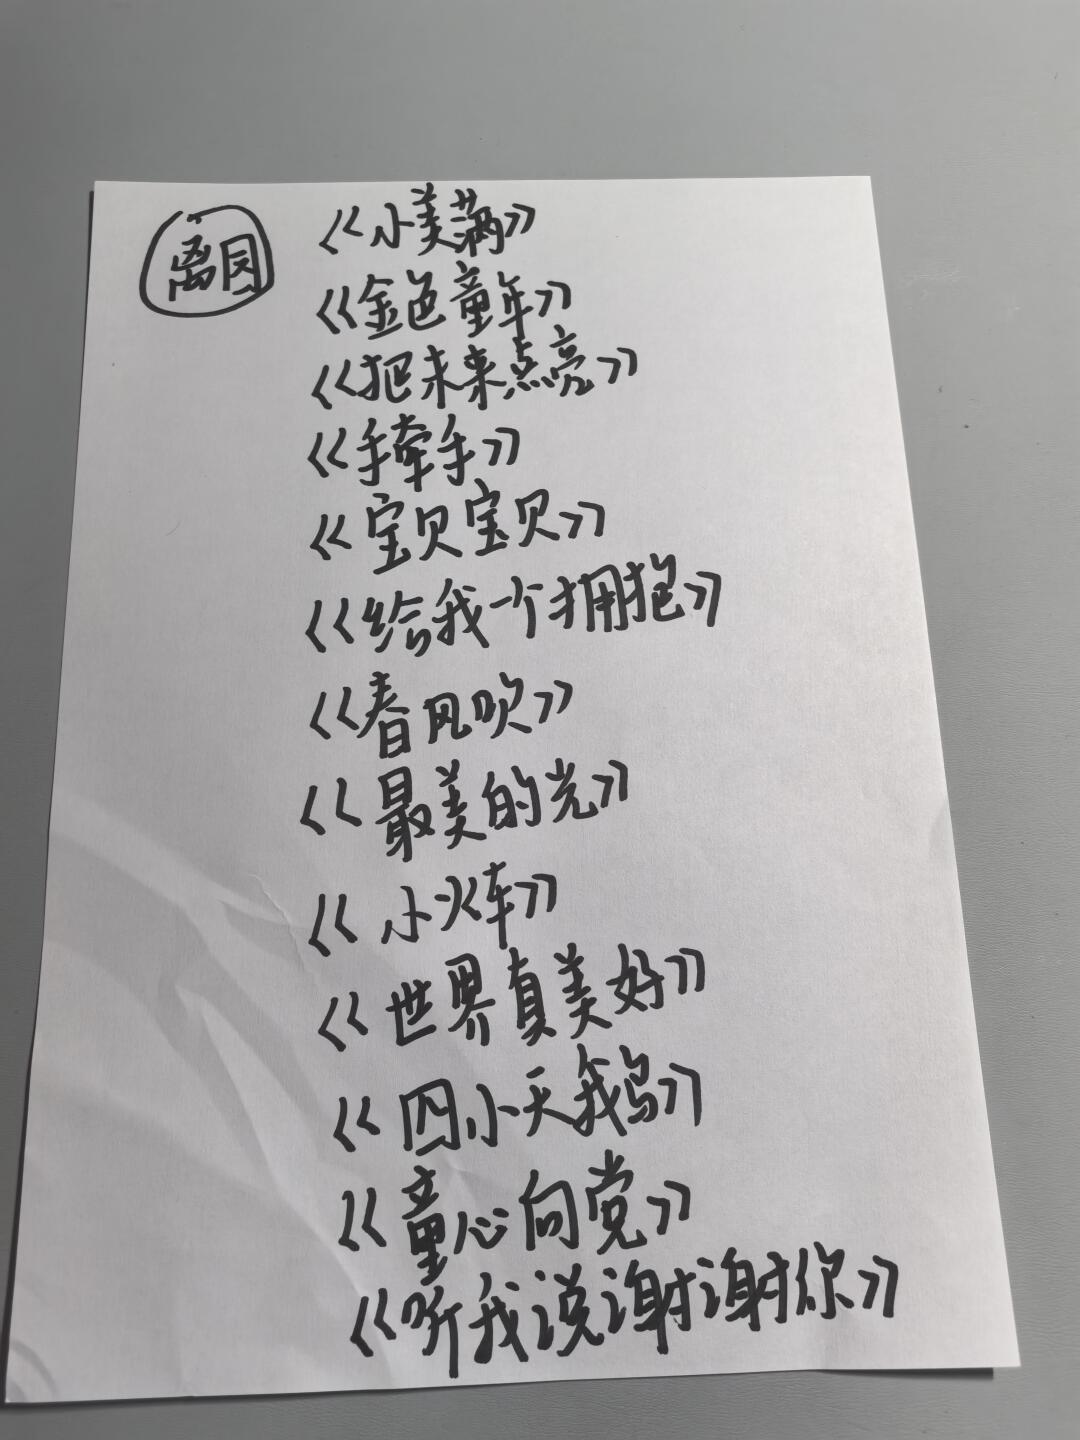 离园
《小美满》
《金色童年》
《把未来点亮》
《手牵手》
《宝贝宝贝》
《给我一个拥抱》
《春风吹》
《最美的光》
《小火车》
《世界真美好》
《四小天鹅》
《童心向党》
《听我说谢谢你》